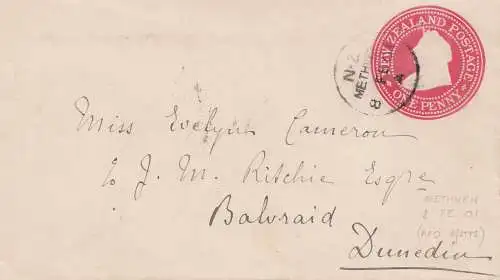 NEW ZEALAND POSTAGE
ONE PENNY
N-Z
METHVEN
8 FE
Miss Evelyn Cameron
c/o J. M. Ritchie Esqre
Balvraid
Dunedin
METHVEN
8 FE 01